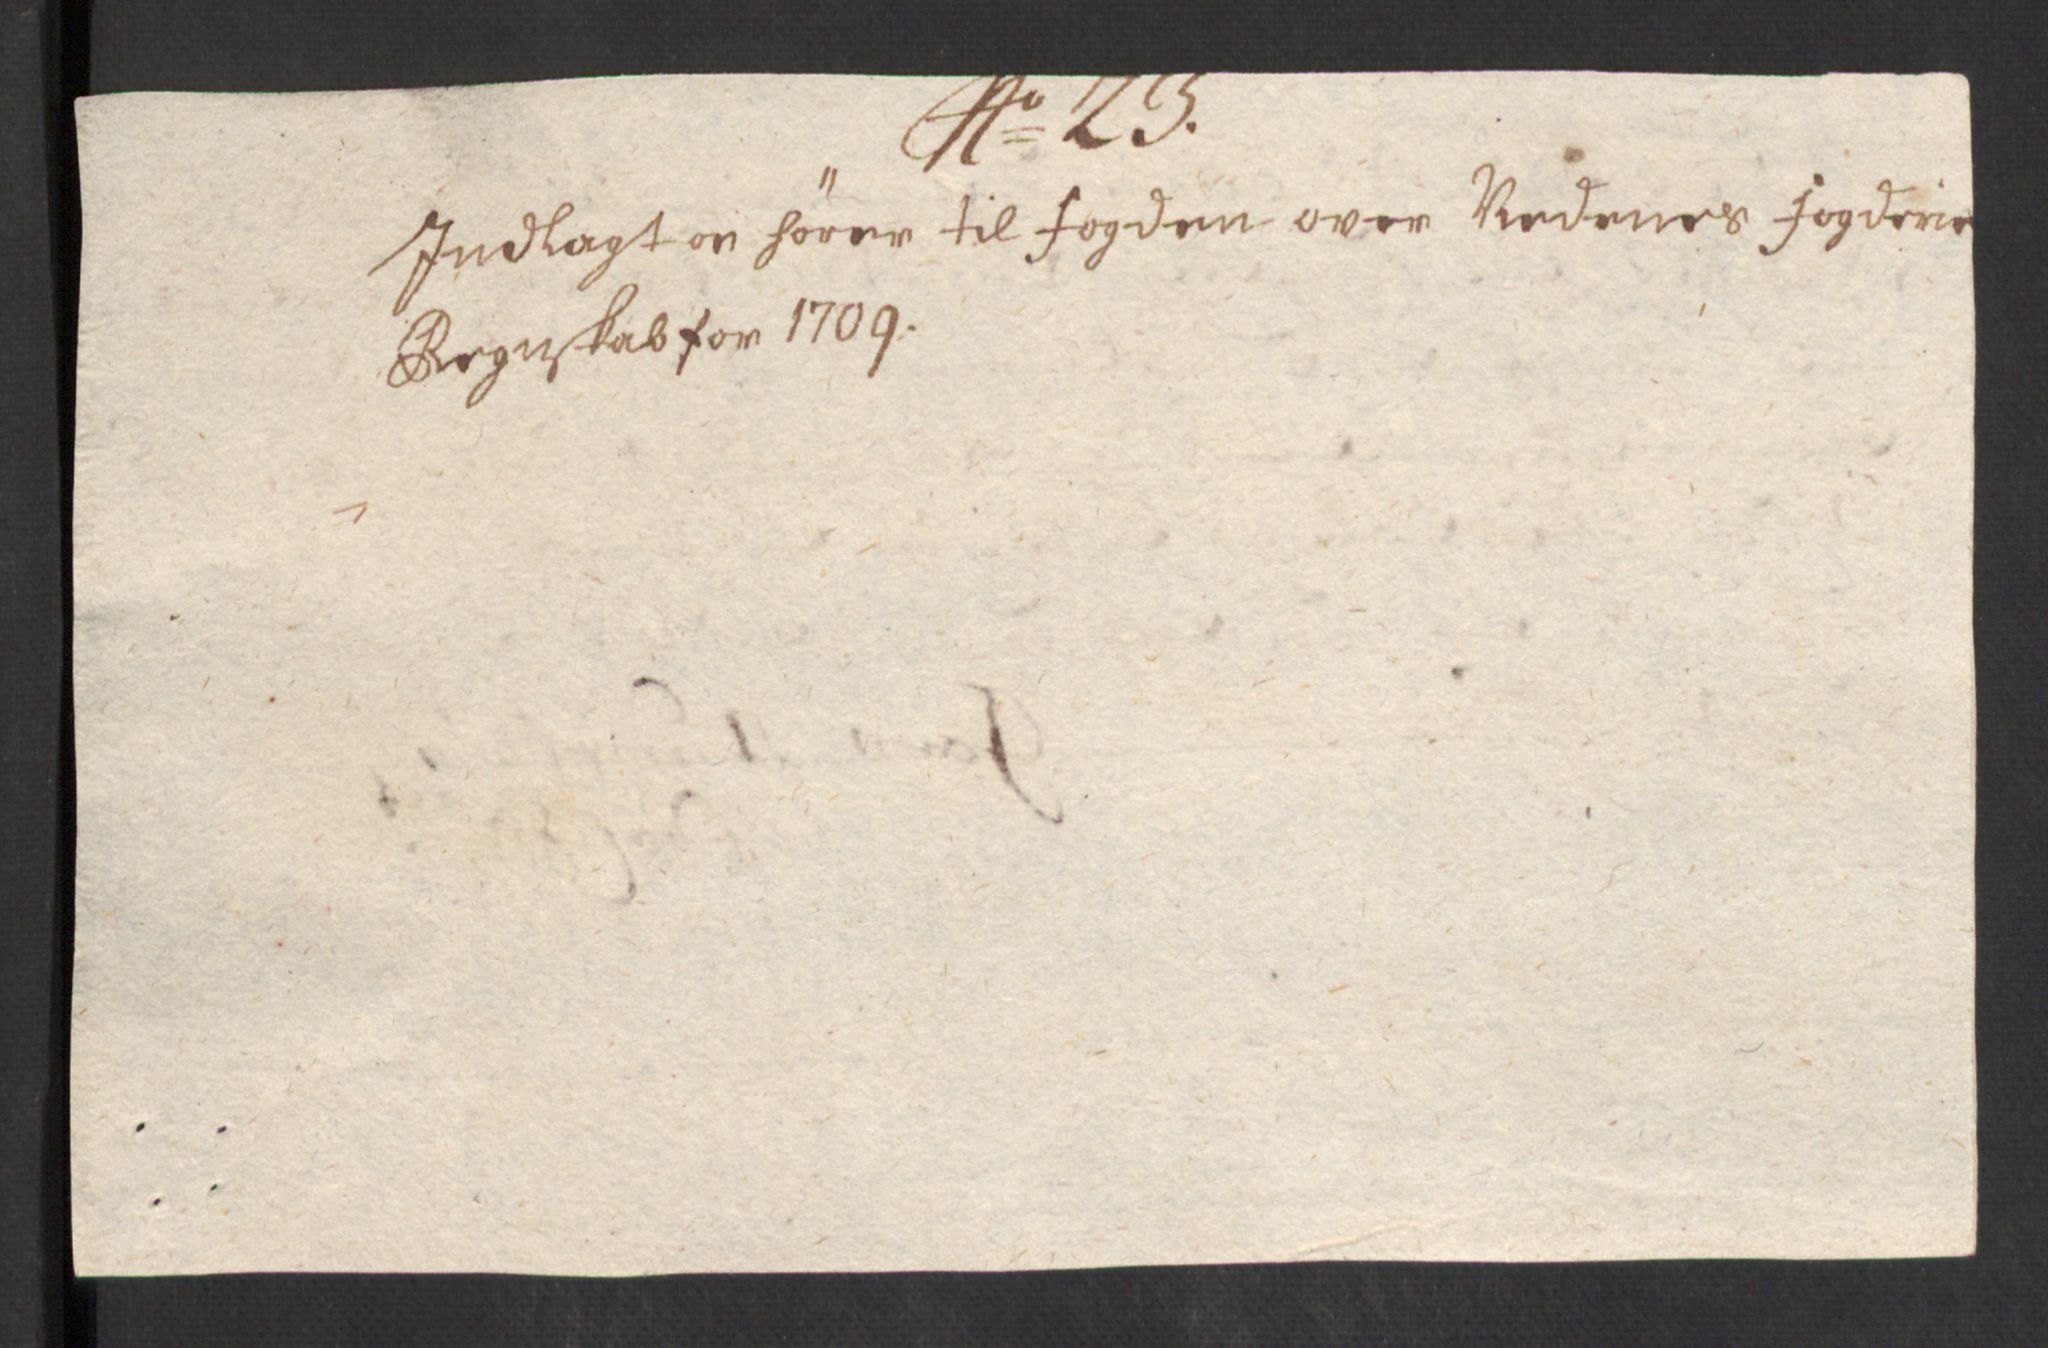 No 23.
Indlagt en hörer til fogden over Nedenes fogderie
Regnskab for 1709.